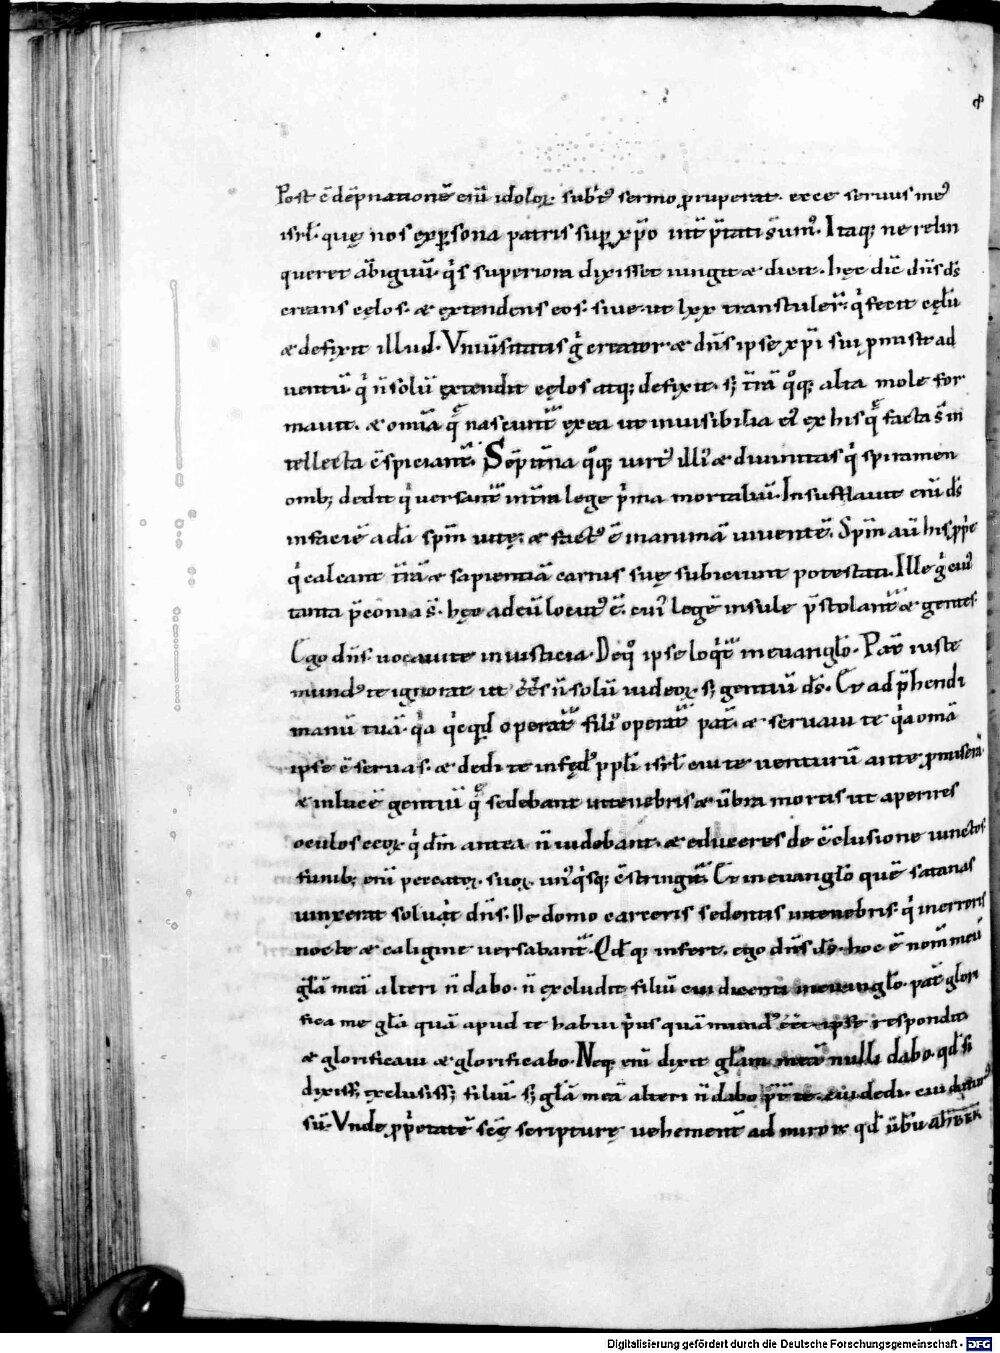 Post c̄dēpnationē enī idoloꝝ. subit᷒ sermo ꝓruperat. ecce seruus me᷒
isrl̄. quę nos ex ꝑsona patris suꝑ xp̄o int̄p̄tati sum᷒. Itaqꝫ ne relin
queret ābiguū. qͥs superiora dixisset iungit & dicit. hęc dic̄ dn̄s ds̄
creans cęlos. & extendens eos. siue. ut lxx transtuler̄. qͥ fecit cęlū
& defixit illud. Vniūsitatis gͥ creator & dn̄s ipse xp̄i sui p̄nuntiat ad
uentū. qͥ n̄ solū extendit cęlos atqꝫ defixit. sꝫ t̄rā qͦqꝫ alta mole for
mauit. & om̄ia q̄ nascunt᷑ ex ea ut inuisibilia ei᷒ ex his q̄ facta s̄ in
tellecta c̄spiciant᷑. Sēpit̄na qͦqꝫ uirt᷒ illi᷒ & diuinitas qͥ spiramen
omībꝫ dedit qͥ uersant᷑ in t̄ra lege pͥma mortaliū. Insufflauit enī ds̄
in faciē adā spm̄ uitę. & fact᷒ ē in animā uiuentē. Spm̄ aū his ꝓpͥe
qͥ calcant t̄rā & sapientiā carnis suę subiciunt potestati. Ille gͥ cui᷒
tanta p̄conia s̄. hęc ad eū locut᷒ ē. cui᷒ legē insule p̄stolant᷑ & gentes.
Ego dn̄s uocaui te in iusticia. De qͦ ipse loqͥt᷑ in euanglo. Pat̄ iuste
mund᷒ te ignorat ut c̄c̄s n̄ solū iudeoꝝ. sꝫ gentiū ds̄. Et ad p̄hendi
manū tuā. qͥa qͥcqd̄ operat᷑ fili᷒ operat᷑ pat̄. & seruaui te qͥa omā
ipse c̄seruas. & dedi te in fęd᷒ ppl̄i isrl̄ cui te uenturū ante ꝓmiserā
& in lucē gentiū q̄ sedebant in tenebris & ūbra mortis ut aperires
oculos cecoꝝ qͥ dm̄ antea n̄ uidebant. & educeres de c̄clusione uinctos.
funibꝫ enī peccatoꝝ suoꝝ un᷒qͥsqꝫ c̄stringit᷑. Et in euanglo quē satanas
uinxerat soluit dn̄s. De domo carceris sedentis in tenebris. qͥ in erroris
nocte & caligine uersabant᷑. Qd̄qꝫ infert. ego dn̄s ds̄. hoc ē nom̄ meū
gl̄ā meā alteri n̄ dabo. n̄ excludit filiū cui dicenti in euanglo. pat̄ glori
fica me gl̄a quā apud te habui pͥus quā mund᷒ ēet ipse respondit
& glorificaui & glorificabo. Neqꝫ enī dixit gl̄am meā nulli dabo. qd̄ si
dixissꝫ, exclusissꝫ filiū. sꝫ gl̄ā meā alteri n̄ dabo p̄t̄ te. cui dedi. cui
sū. Vnde ꝓpͥetatē scę scripturę uehement̄ ad miror qd̄ ūbū
Digitalisierung gefördert durch die Deutsche Forschungsgemeinschaft - DFG